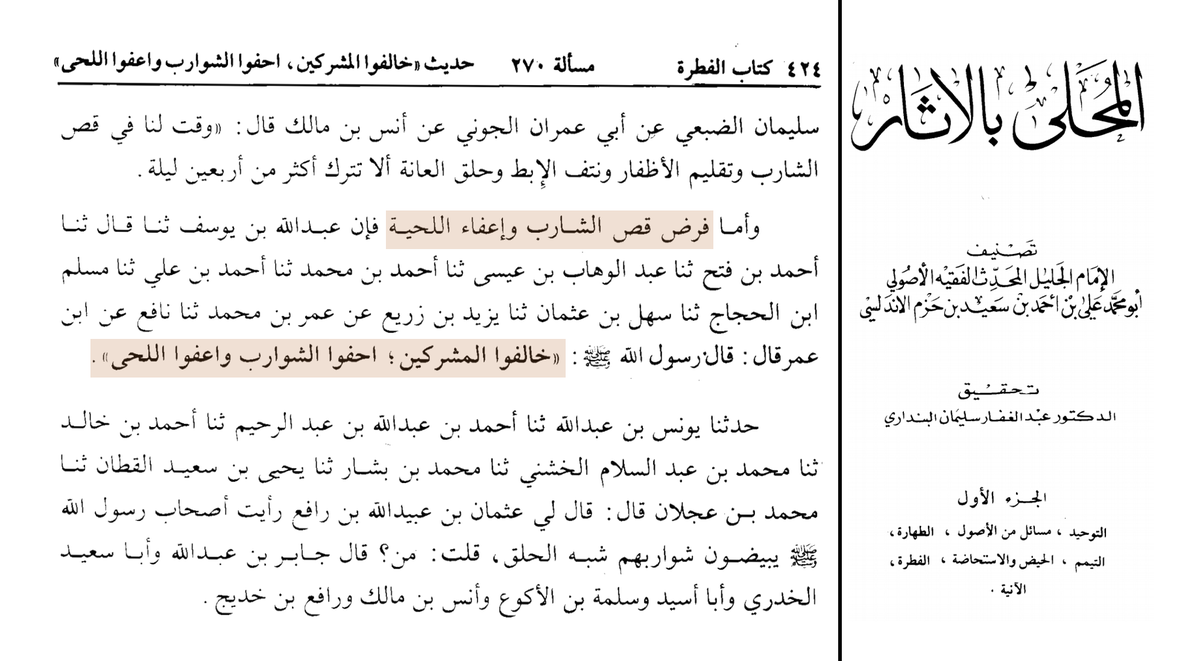 ٤٢٤ كتاب الفطرة مسألة ٢٧٠ حديث «خالفوا المشركين، احفوا الشوارب واعفوا اللحى»
سليمان الضبعي عن أبي عمران الجوني عن أنس بن مالك قال: «وقت لنا في قص
الشارب وتقليم الأظفار ونتف الإبط وحلق العانة ألا تترك أكثر من أربعين ليلة.
وأمـا فرض قص الشـارب وإعفـاء اللحيـة فإن عبـدالله بن يوسف ثنـا قـال ثنـا
أحمد بن فتح ثنا عبد الوهاب بن عيسى ثنا أحمد بن محمد ثنا أحمد بن علي ثنا مسلم
ابن الحجاج ثنا سهل بن عثمان ثنا يزيد بن زريع عن عمر بن محمد ثنا نافع عن ابن
عمر قال: قال رسول الله ﷺ: «خالفوا المشركين؛ احفوا الشوارب واعفوا اللحى».
حدثنا يونس بن عبدالله ثنا أحمد بن عبدالله بن عبد الرحيم ثنا أحمد بن خالـد
ثنا محمد بن عبد السلام الخشني ثنا محمد بن بشـار ثنا يحيى بن سعيـد القطان ثنـا
محمد بـن عجلان قال: قال لي عثمان بن عبيدالله بن رافع رأيت أصحاب رسول الله
ﷺ يبيضـون شواربهم شبه الحلق، قلت: من؟ قال جـابـر بن عبـدالله وأبـا سعيـد
الخدري وأبا أسيد وسلمة بن الأكوع وأنس بن مالك ورافع بن خديج.
المحلى بالآثار
تصنيف
الإمام الجليل المحدث الفقيه الأصولي
أبو محمد علي بن أحمد بن سعيد بن حزم الاندلسي
تحقيق
الدكتور عبد الغفار سليمان البنداري
الجزء الأول
التوحيد، مسائل من الأصول، الطهارة،
التيمم، الحيض والاستحاضة، الفطرة،
الآنية.